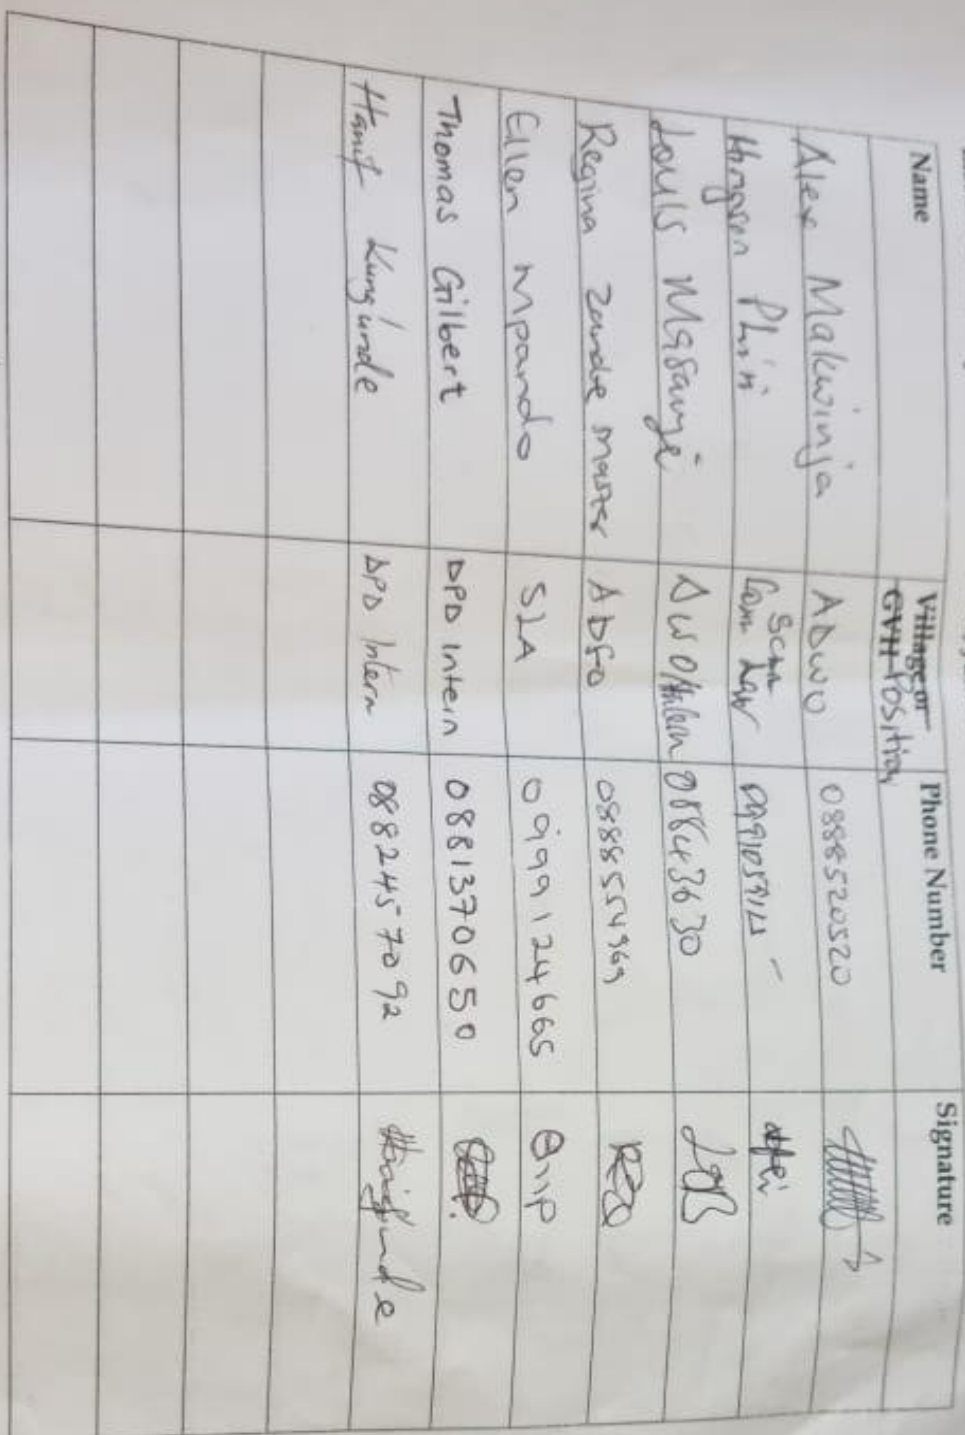 Name Village or GVH Position Phone Number Signature
Alex Makwinja ADWO 0888520520
Phiri
Louls Masanje
Regina Zande master ADFO 0888554969
Ellen Mpando SIA 0999124665
Thomas Gilbert DPD Intern 0881370650
Hanif Kung'unde DPD Intern 0882457092